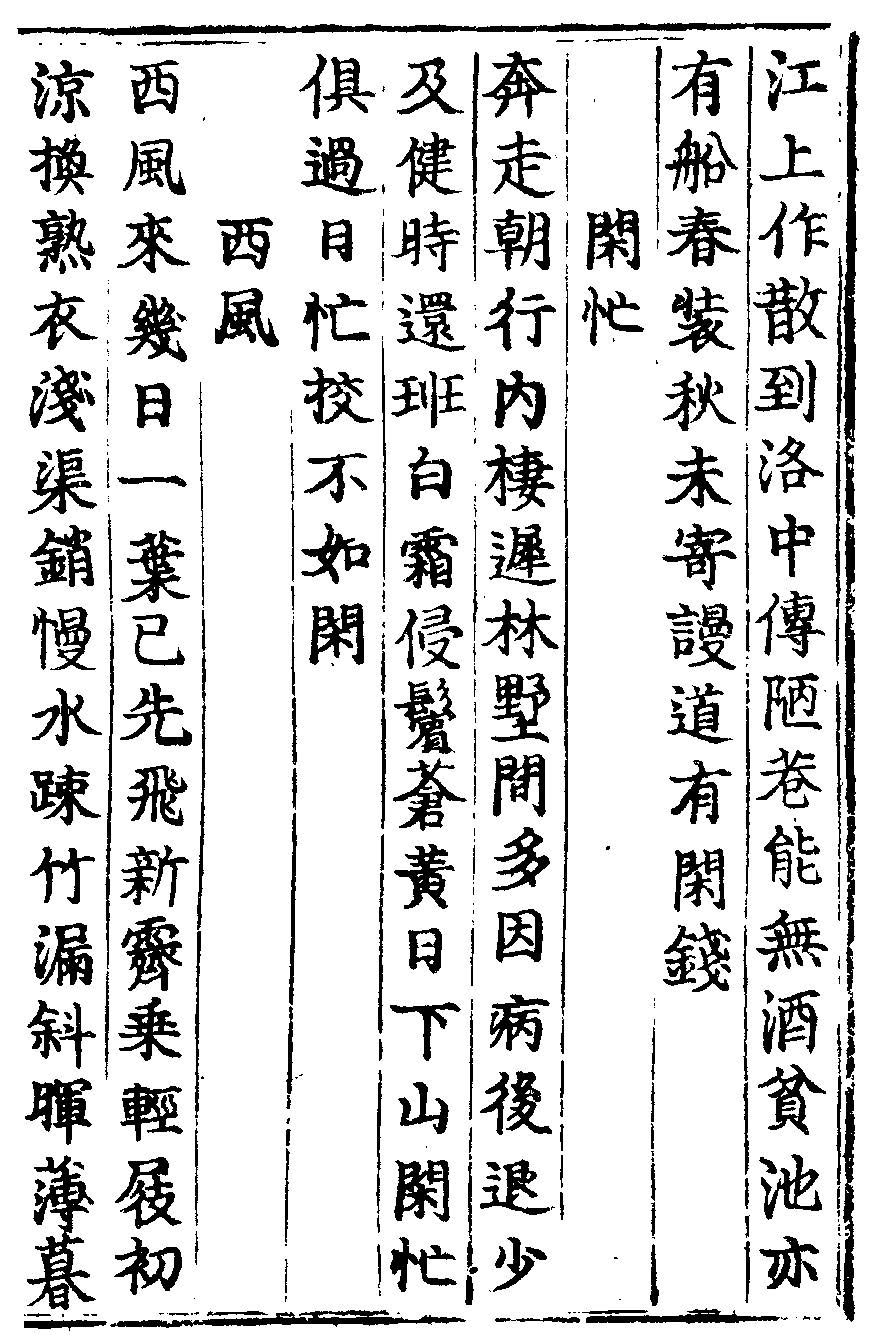 江上作散到洛中傳陋巷能無酒貧池亦
有船春装秋未寄謾道有閑錢
閑忙
奔走朝行内棲遲林墅間多因病後退少
及健時還班白霜侵鬢蒼黃日下山閑忙
俱過日忙校不如閑
西風
西風來幾日一葉已先飛新霽乗輕屐初
涼換熟衣淺渠銷慢水踈竹漏斜暉薄暮